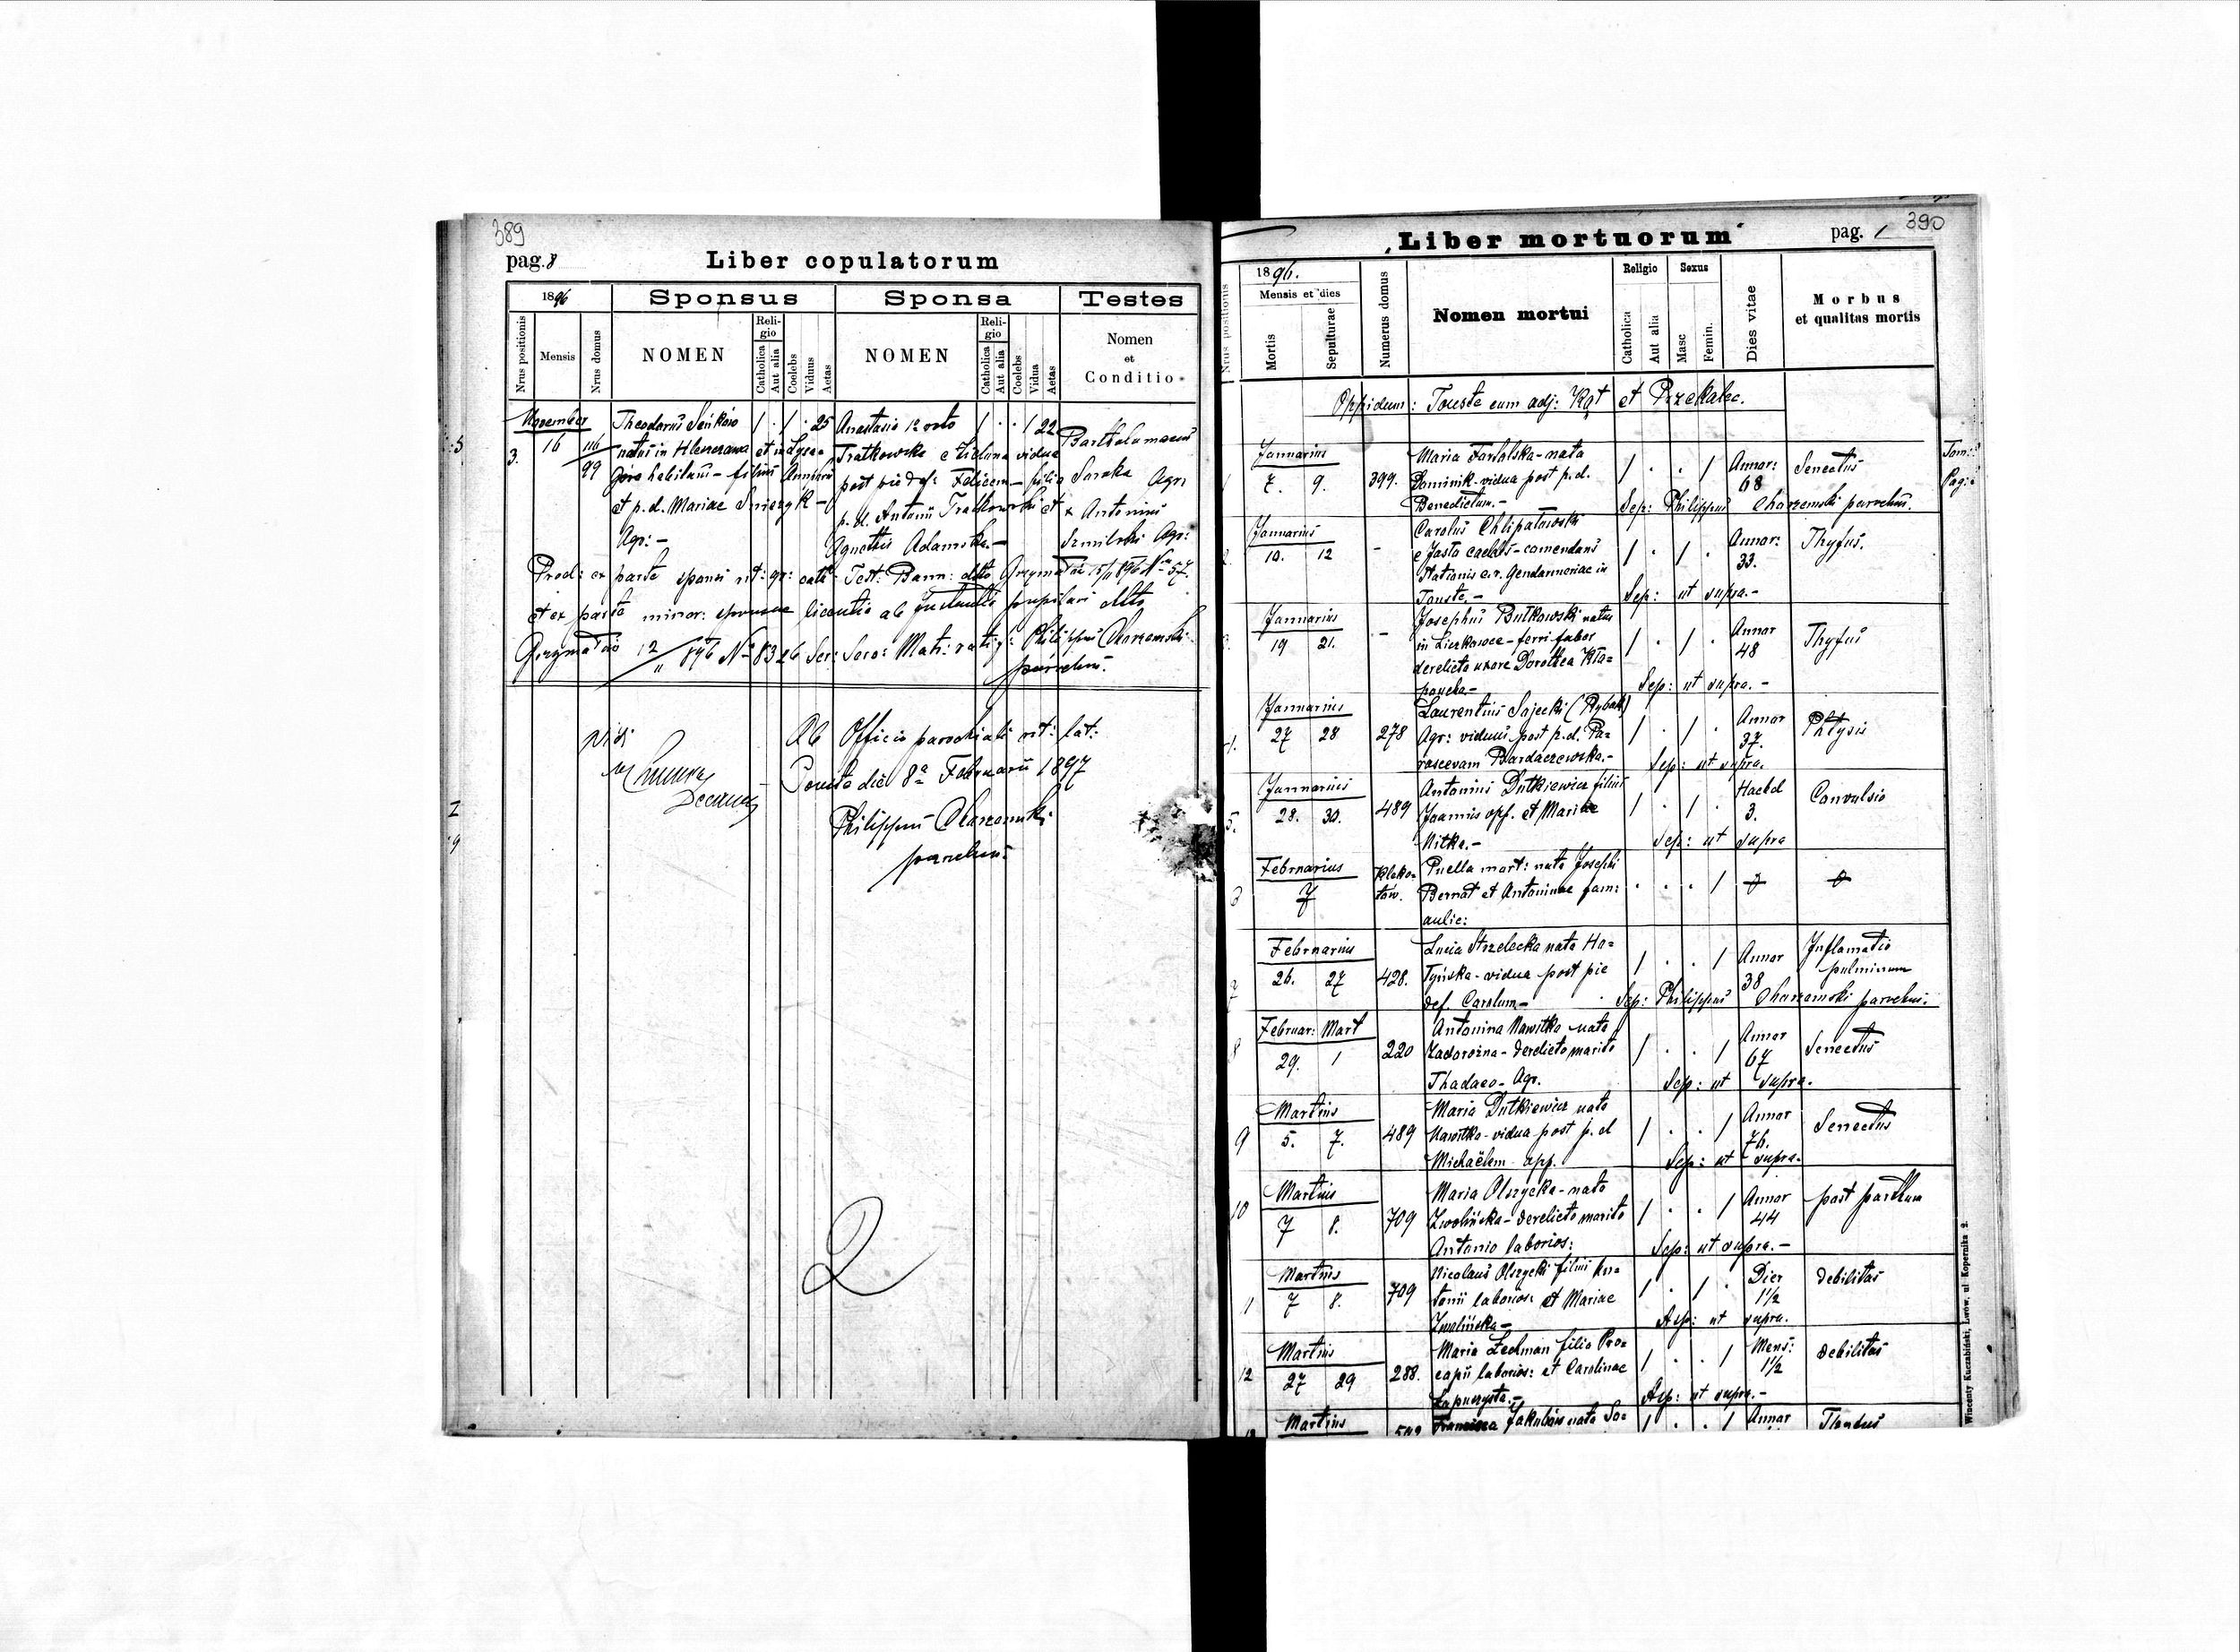 389
pag. 8
Liber copulatorum
1896
Sponsus
Sponsa
Testes
Nrus positionis
Mensis
Nrus domus
NOMEN
Religio
Catholica
Aut alia
Coelebs
Viduus
Aetas
NOMEN
Religio
Catholica
Aut alia
Coelebs
Vidua
Aetas
Nomen
et
Conditio
November
3. 16 116/99
Theodorus Seńków
natus in et in
habitans - filius
et p. d. Mariae
Agr: -
1 . 1 . 25
Anastasia 12 voto
Tratkowska e Zielona vidua
post pie def: Felicem - filia
p. d. Antonii Tratkowski et
Agnetis Adamska. -
1 . . 1 22
Bartholomaeus
Saraka Agr:
x Antonius
Szmilski Agr:
Prod: ex parte sponsi rit: gr: cath: Test: Bann: dtto Grzymałów 15/11 896 Nr 57.
et ex parte minor: sponsae licentia ab pupilari dtto
Grzymałów 12/11 896 No 8326 Philippus Charzemski
parochus.
Vidi
Decanus
Ab Officio parochiali rit: lat:
Touste die 8a Februarii 1897
Philippus Charzemski
parochus.
2
390
Liber mortuorum
pag. 1
1896.
Mensis et dies
Nrus positionis
Mortis
Sepulturae
Numerus domus
Nomen mortui
Religio
Catholica
Aut alia
Sexus
Masc
Femin.
Dies vitae
Morbus
et qualitas mortis
Oppidum: Touste cum adj: Kąt et Przekalec.
Januarius
7. 9. 399.
Maria - nata
Dominik - vidua post p. d.
Benedictum. -
1 . . 1 Annor: 68 Senectus
Sep: Philippus Charzemski parochus.
Tom:
Pag:
Januarius
10. 12 -
Carolus Chlipałowski
e Jasło caelebs - comendans
Stationis c. r. Gendarmeriae in
Touste. -
1 . 1 . Annor: 33. Thyfus.
Sep: ut supra. -
Januarius
19 21. -
Josephus Butkowski natus
in - ferri faber
derelicta uxore Dorothea
1 . 1 . Annor 48 Thyfus
Sep: ut supra. -
Januarius
4. 27 28 278
Laurentius Sajecki (Rybak)
Agr: viduus post p. d. Pa=
rascevam Bardaczewska. -
1 . 1 . Annor 37. Phtysis
Sep: ut supra.
Januarius
5. 28. 30. 489
Antonius Dutkiewicz filius
Joannis opf. et Mariae
Nitka. -
1 . 1 . Haebd 3. Convulsio
Sep: ut supra
Februarius
7
Puella mort: nata Josephi
Bernat et Antoninae fam:
aulic:
. . . 1
Februarius
7 26. 27 428.
Lucia Strzelecka nata Ho=
tyńska - vidua post pie
def. Carolum. -
1 . . 1 Annor 38 Inflamatio
pulminum
Sep: Philippus Charzemski parochus.
Februar: Mart
8 29. 1 220
Antonina Nawitka nata
Zadorożna - derelicto marito
Thadaeo - Agr.
1 . . 1 Annor 67 Senectus
Sep: ut supra.
Martius
9 5. 7. 489
Maria Dutkiewicz nata
Nawitka - vidua post p. d
Michaëlem opf.
1 . . 1 Annor 76. Senectus
Sep: ut supra.
Martius
10 7 8. 709
Maria Olszycka - nata
Zwolińska - derelicto marito
Antonio laborios:
1 . . 1 Annor 44 post partum
Sep: ut supra. -
Martius
7 8. 709
Nicolaus Olszycki filius An=
tonii laborios: et Mariae
Zwolińska -
1 . 1 . Dier 1 1/2 debilitas
Asp: ut supra.
Martius
12 27 29 288.
Maria Lechman filia Pro=
copii laborios: et Carolinae
Kapuszysta. -
1 . . 1 Mens: 1 1/2 debilitas
Asp: ut supra. -
Martius
Francisca Jakubów nata So=
1 . . 1 Annor
Wincenty Kuczabiński, Lwów, ul Kopernika 2.